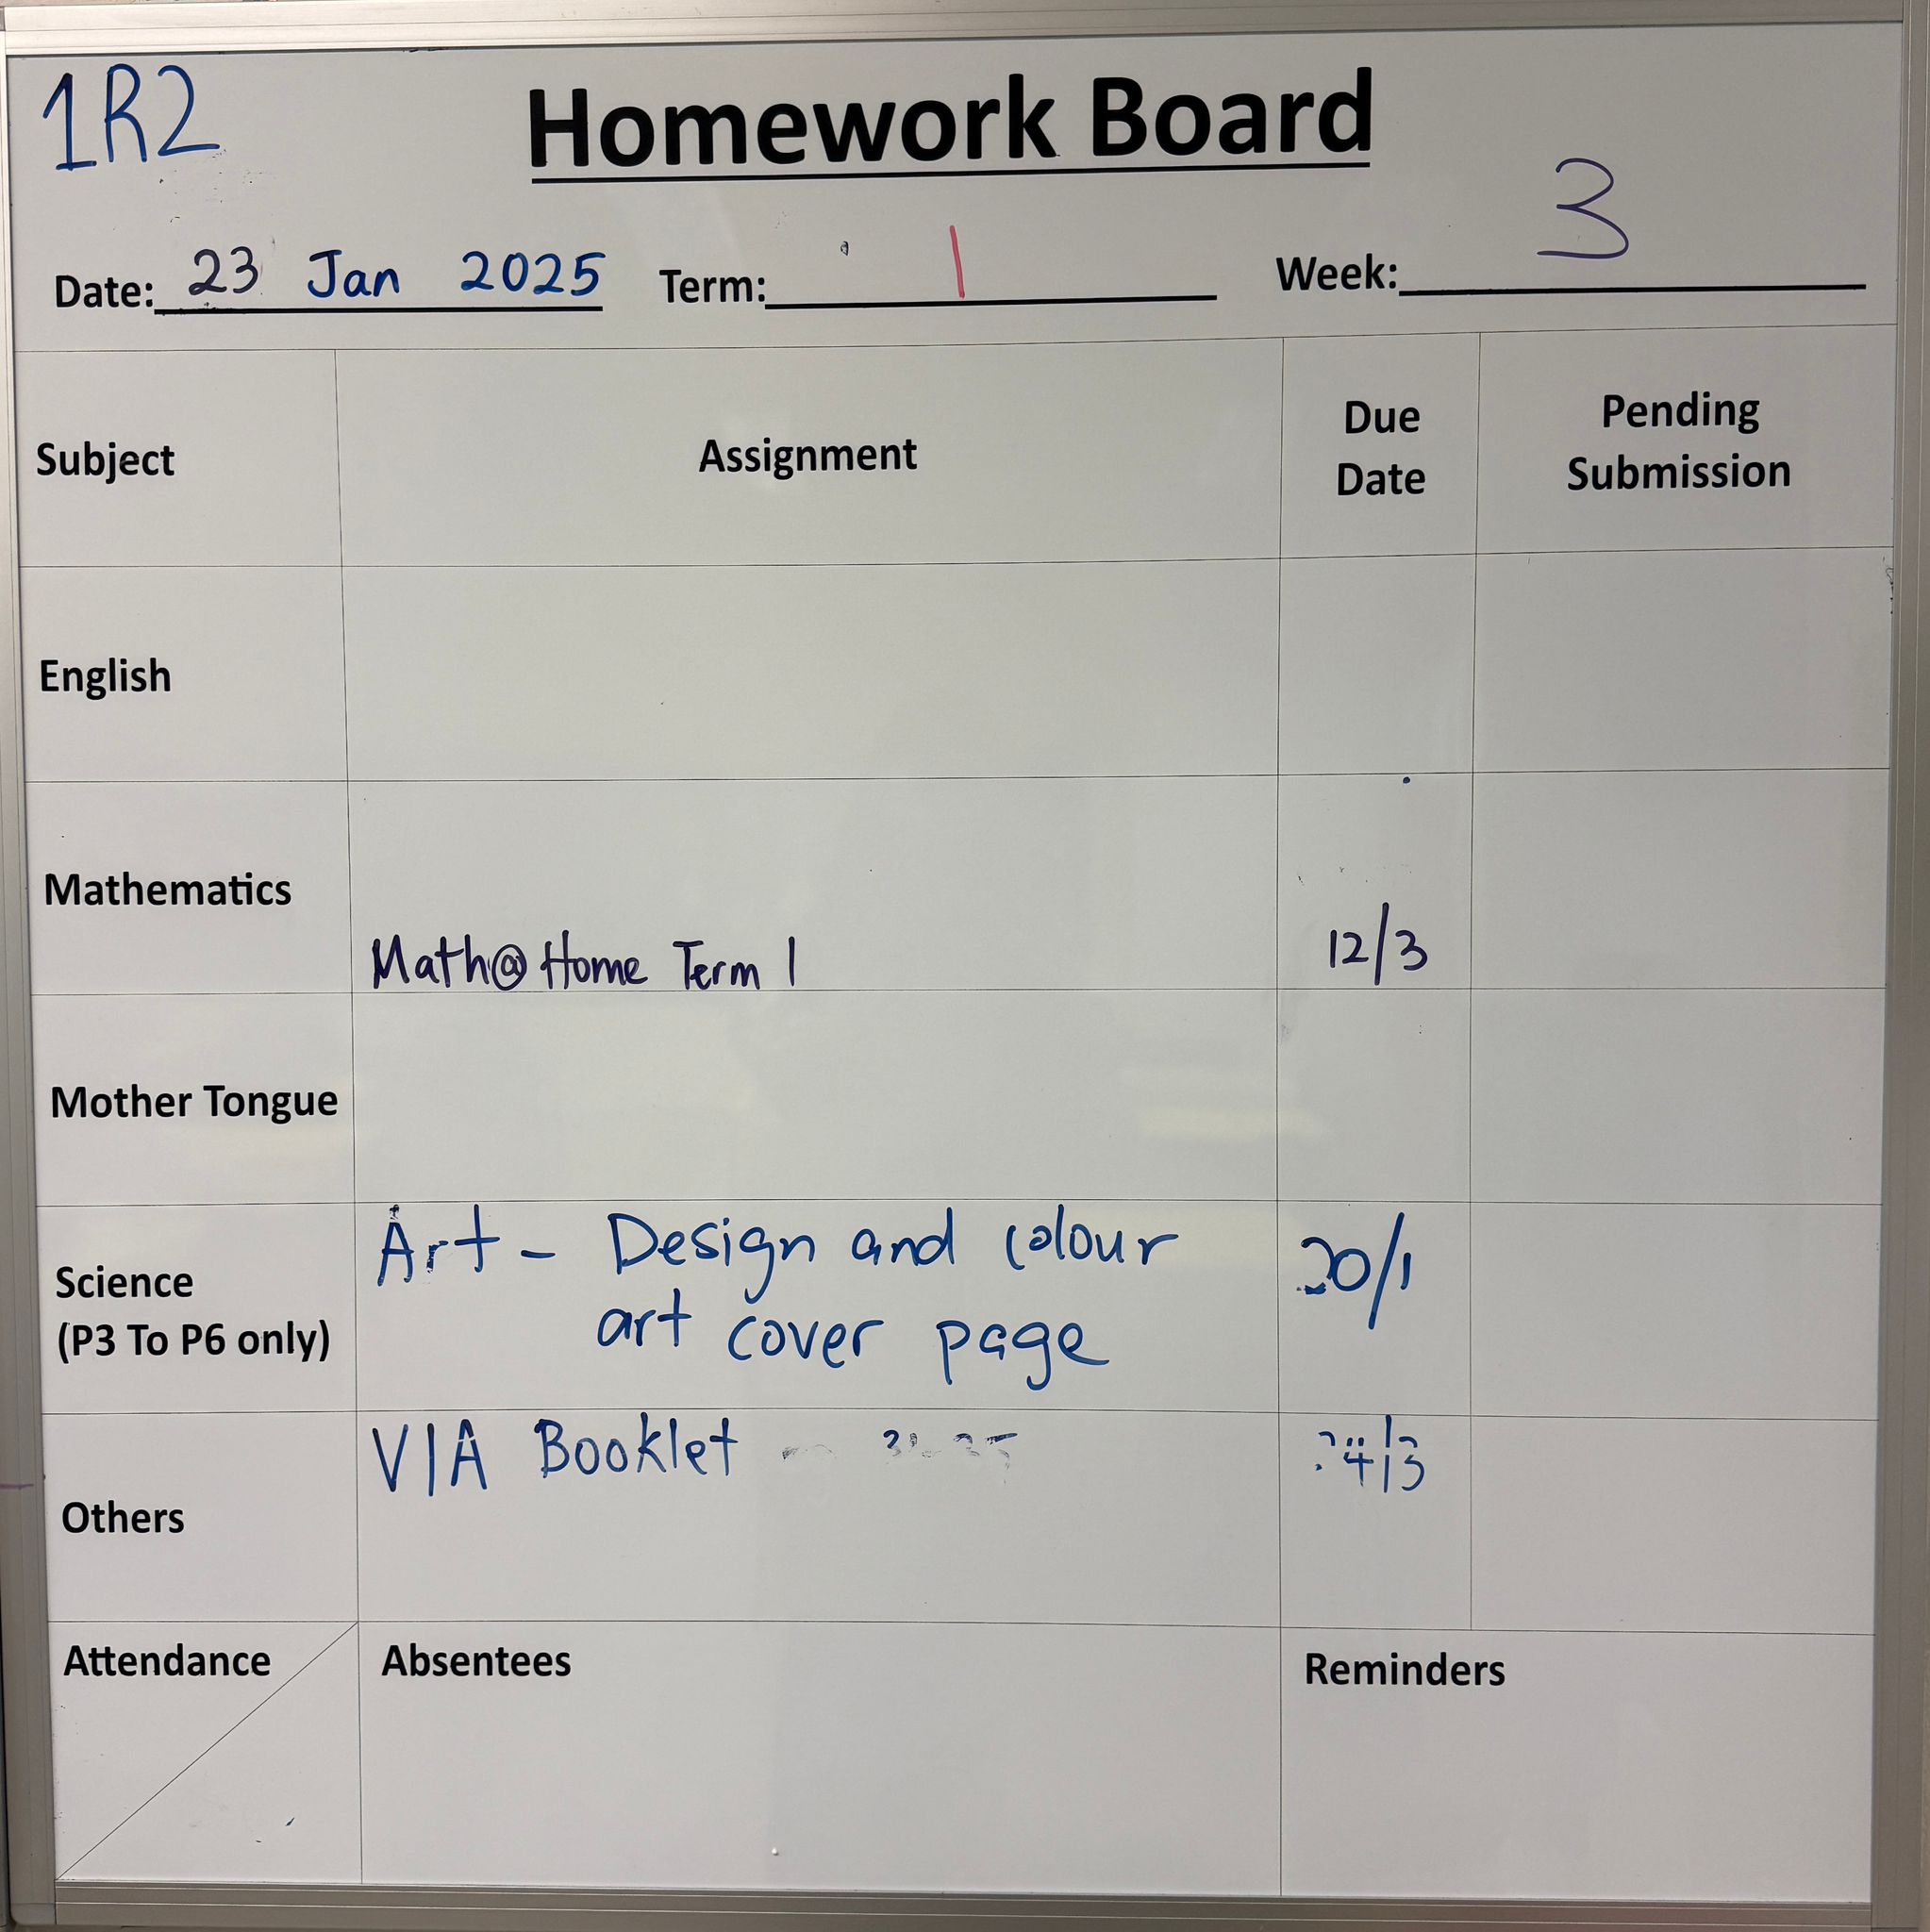 1R2
Homework Board
Date: 23 Jan 2025 Term: 1 Week: 3
Subject Assignment Due Date Pending Submission
English
Mathematics
Math@Home Term 1 12/3
Mother Tongue
Science
(P3 To P6 only)
Art - Design and colour
art cover page
VIA Booklet
Others
Attendance Absentees Reminders